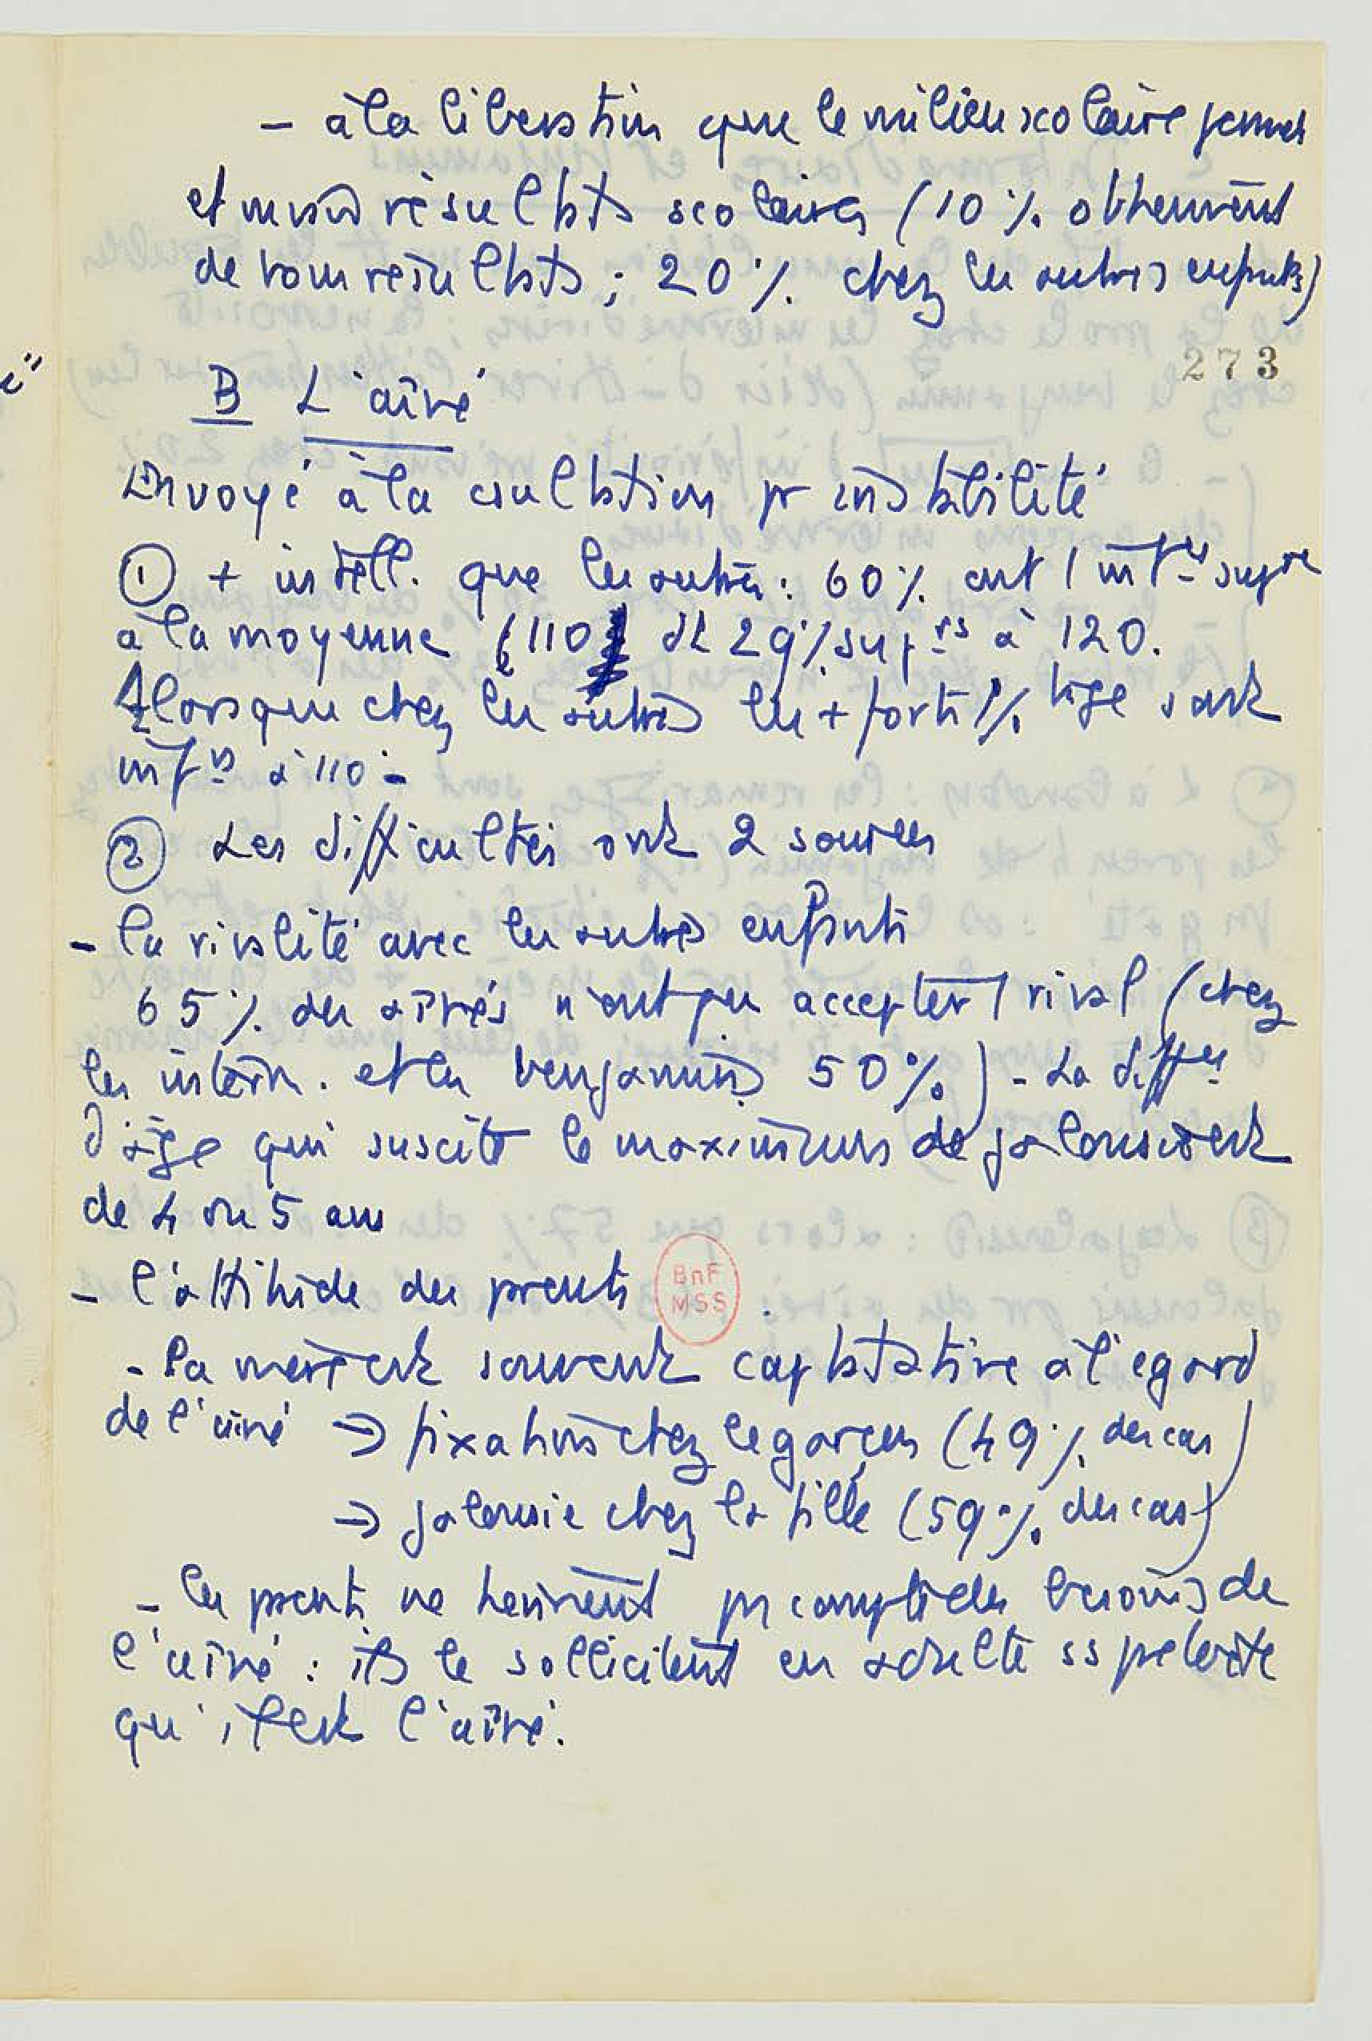 - à la libération que le milieu scolaire permet
et mauvais résultats scolaires (10 % obtiennent
de bons résultats ; 20 % chez les autres enfants)
273
B L'aîné
Envoyé à la consultation pr instabilité
① + intell. que les autres : 60 % ont 1 supre
à la moyenne (110 et 29 % suprs à 120.
Alors que chez les autres les + forts %tage sont
infrs à 110 -
② Les difficultés ont 2 sources
- la rivalité avec les autres enfants
65 % des aînés n'ont pu accepter 1 rival (chez
les interm. et les benjamins 50 %) - La diffce
d'âge qui suscite le maximum de jalousie est
de 4 ou 5 ans
- l'attitude des parents
BnF
MSS
- la mère est souvent captatative à l'égard
de l'aîné → fixation chez le garçon (49 % des cas)
→ jalousie chez la fille (59 % des cas)
- les parents ne tiennent pas compte des besoins de
l'aîné : ils le sollicitent en adulte ss prétexte
qu'il est l'aîné.